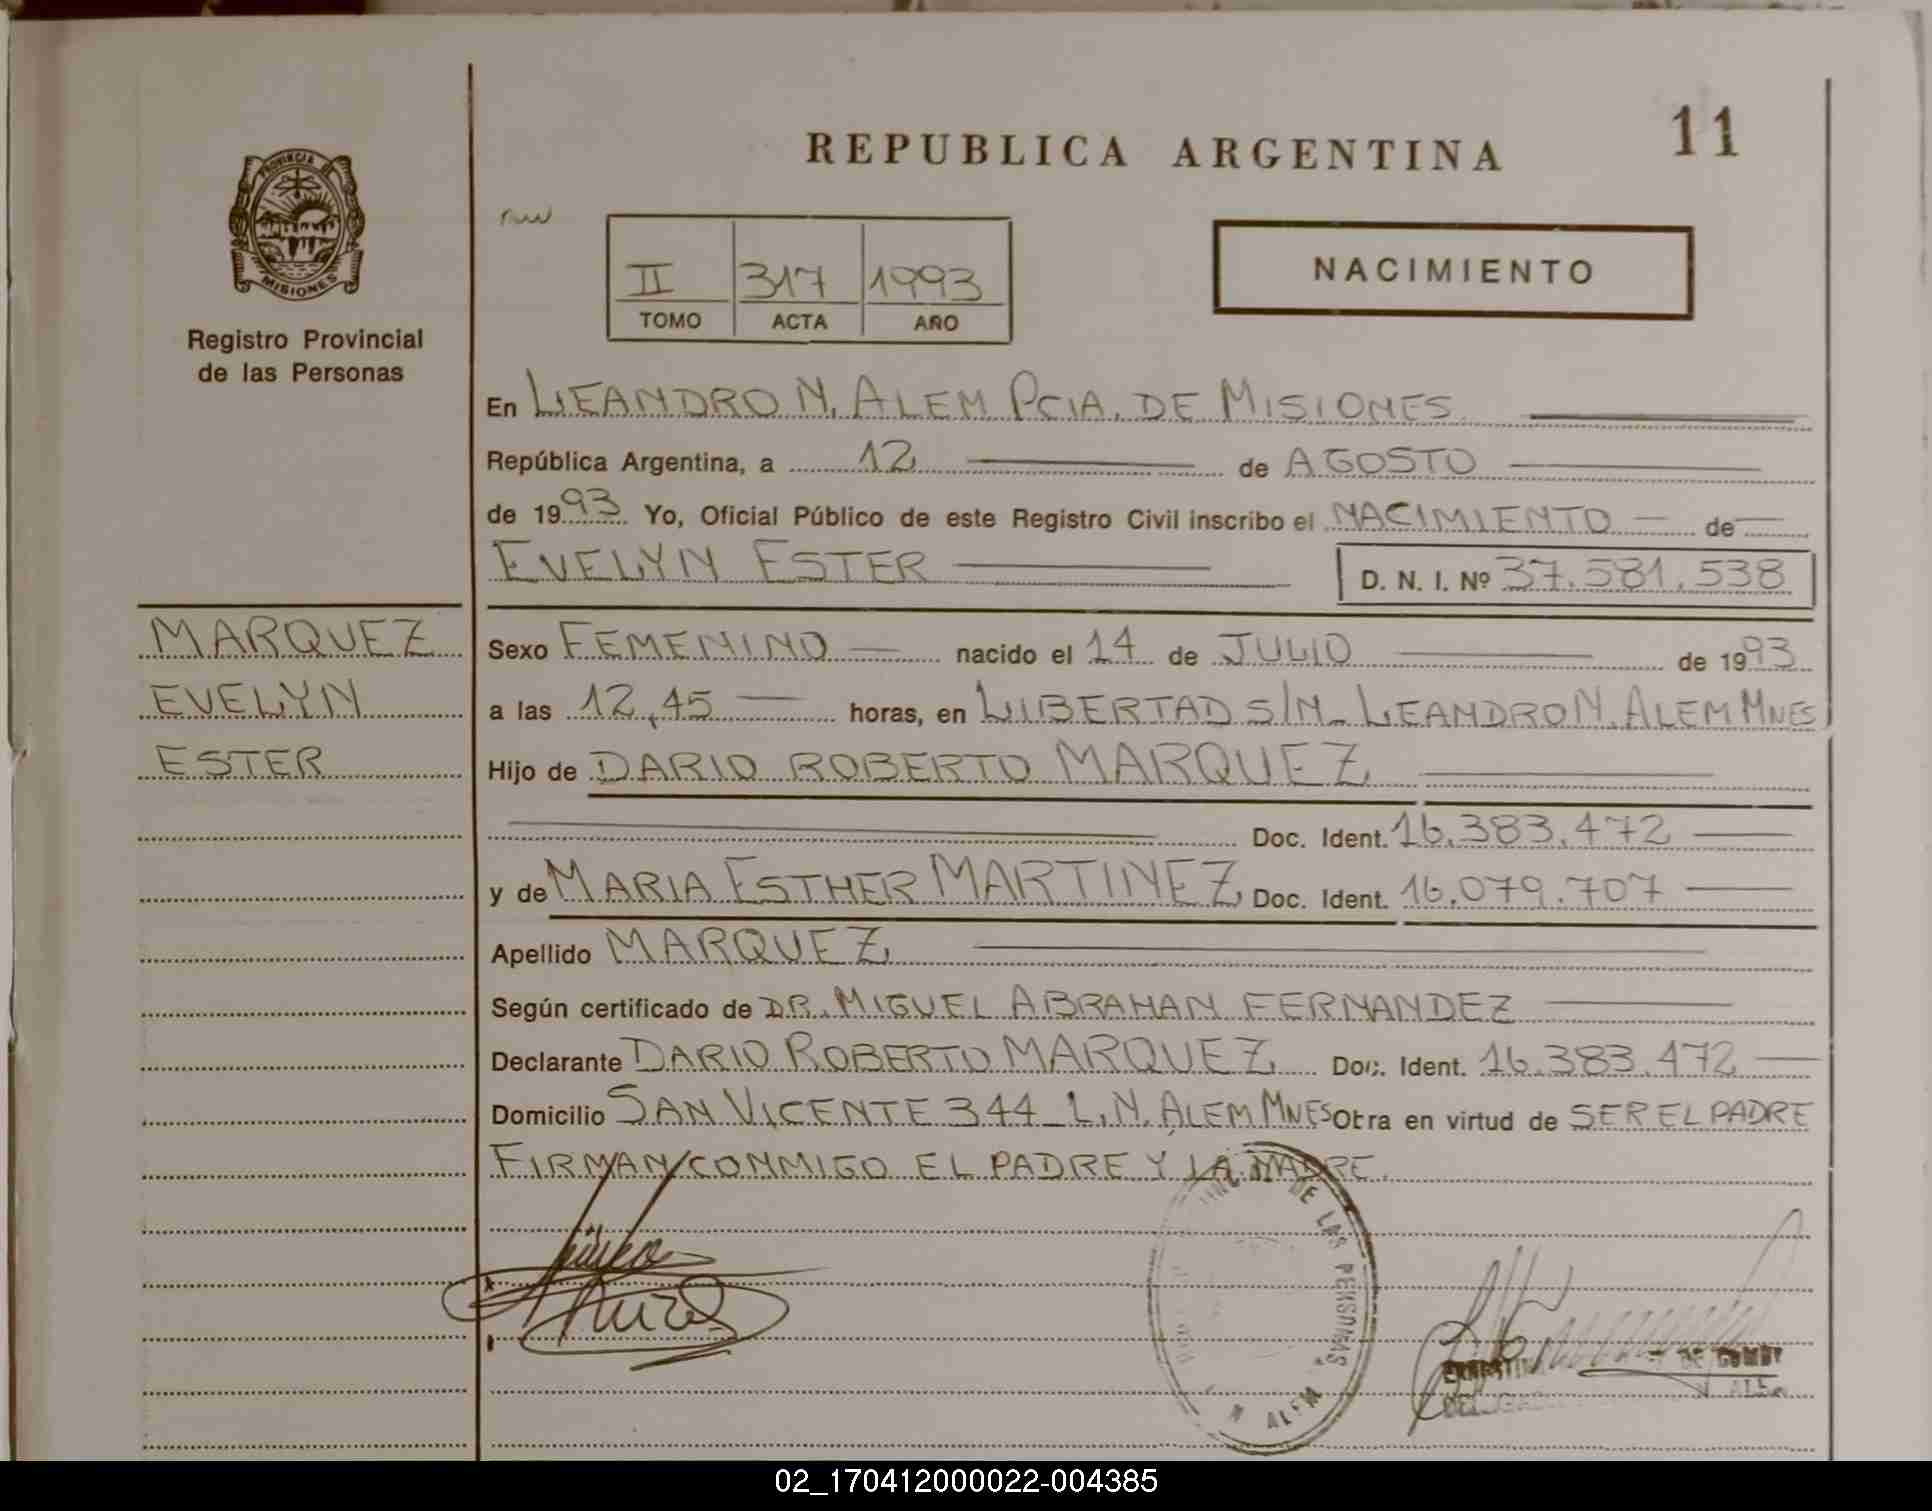 REPUBLICA ARGENTINA
11
PROVINCIA DE
MISIONES
Registro Provincial
de las Personas
II 317 1993
TOMO ACTA AÑO
NACIMIENTO
En LEANDRO N. ALEM PCIA. DE MISIONES
República Argentina, a 12 de AGOSTO
de 1993 Yo, Oficial Público de este Registro Civil inscribo el NACIMIENTO de
EVELYN ESTER D. N. I. Nº 37.581.538
MARQUEZ
EVELYN
ESTER
Sexo FEMENINO nacido el 14 de JULIO de 1993
a las 12,45 horas, en LIBERTAD S/N_ LEANDRO N. ALEM MNES
Hijo de DARIO ROBERTO MARQUEZ
Doc. Ident. 16.383.472
y de MARIA ESTHER MARTINEZ Doc. Ident. 16.079.707
Apellido MARQUEZ
Según certificado de DR. MIGUEL ABRAHAN FERNANDEZ
Declarante DARIO ROBERTO MARQUEZ Doc. Ident. 16.383.472
Domicilio SAN VICENTE 344_ L.N. ALEM MNES Obra en virtud de SER EL PADRE
FIRMAN CONMIGO EL PADRE Y LA MADRE.
DE LAS PERSONAS
N ALEM
02_170412000022-004385